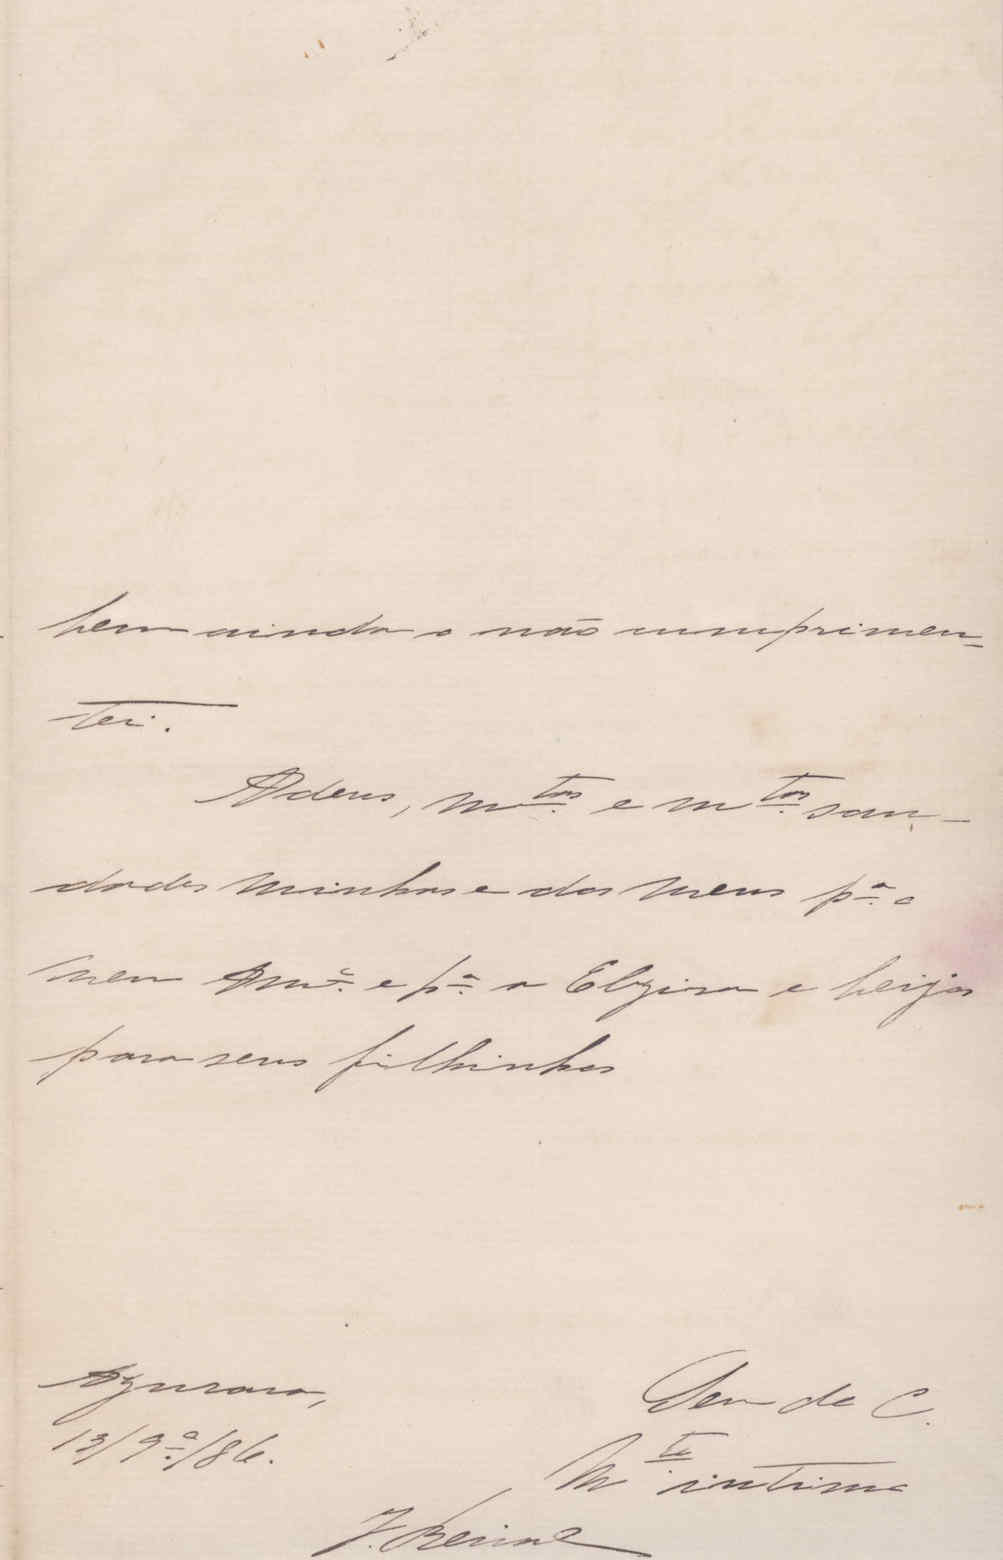 bem ainda o não cumprimen-
tei.
Adeus, m.tas e m.tas sau-
dades minhas e dos meus p.a o
meu Am.o e p.a a Elzira e beijos
para seus filhinhos
Azurara,
13/9.o/86.
Seu de C.
M.to intimo
J.